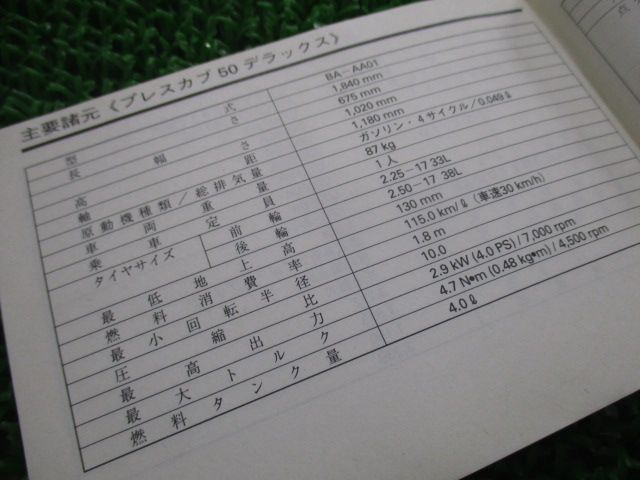 主要諸元《プレスカブ50デラックス》
型 式 BA-AA01
長 さ 1,840 mm
幅 675 mm
高 さ 1,020 mm
軸 距 1,180 mm
原動機種類/総排気量 ガソリン・4サイクル/0.049ℓ
車両重量 87 kg
乗車定員 1人
タイヤサイズ 前輪 2.25-17 33L
後輪 2.50-17 38L
最低地上高 130 mm
燃料消費率 115.0 km/ℓ (車速30 km/h)
最小回転半径 1.8 m
圧縮比 10.0
最高出力 2.9 kW (4.0 PS) / 7,000 rpm
最大トルク 4.7 N•m (0.48 kg•m) / 4,500 rpm
燃料タンク量 4.0ℓ